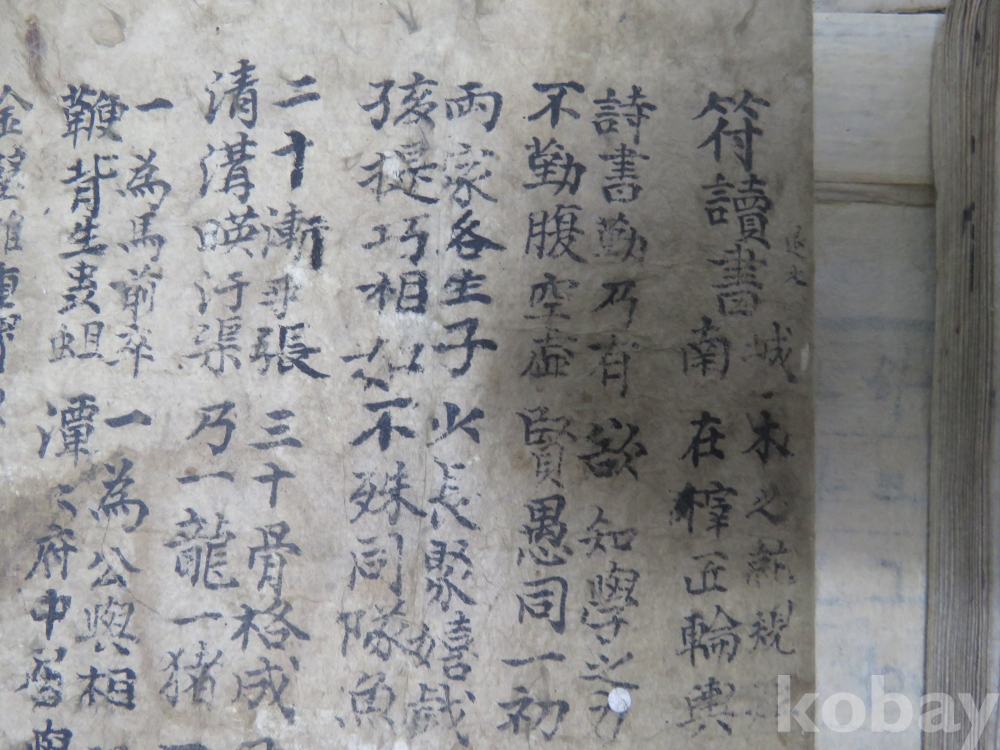 符讀書
城 木之就規
南 在梓匠輪輿
詩書勤乃有 欲知學之力
不勤腹空虛 賢愚同一初
兩家各生子 少長聚嬉戲
孩提巧相如 不殊同隊魚
二十漸乖張 三十骨格成
清溝暎汙渠 乃一龍一猪
一為馬前卒 一為公與相
鞭背生蟲蛆 潭〻府中居
金璧雖重
kobay